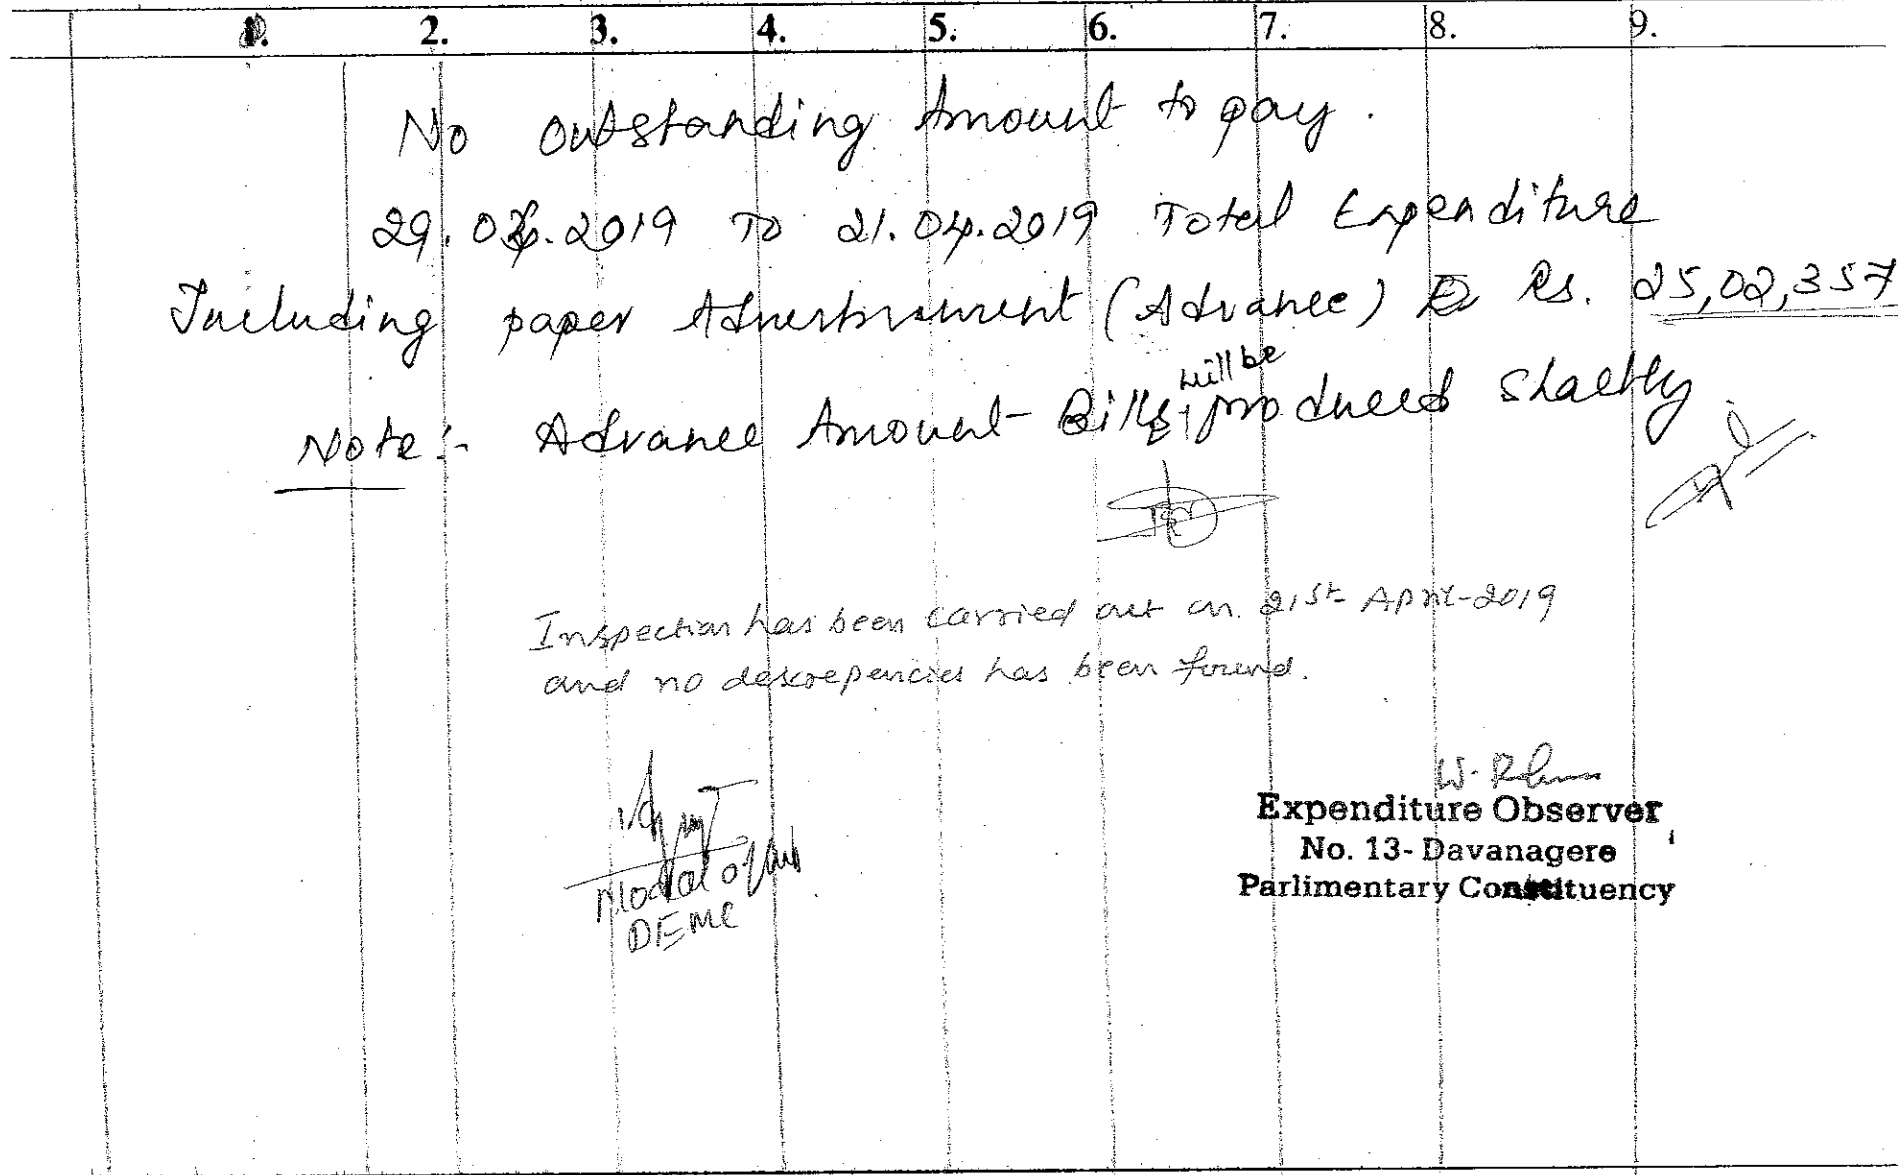 1. 2. 3. 4. 5. 6. 7. 8. 9.
No Outstanding Amount to pay.
29.03.2019 To 21.04.2019 Total Expenditure
Including paper Advertisement (Advance) Rs. 25,02,357
will be
Note:- Advance Amount Bills produced Shortly
Inspection has been carried out on 21st April-2019
and no descrepencies has been found.
W.
Expenditure Observer
No. 13- Davanagere
Parlimentary Constituency
Nodal
DEMC